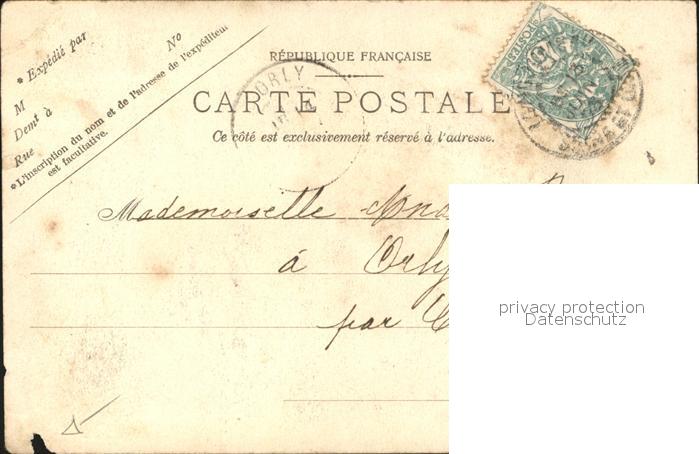 * Expédié par
No
M
Demt à
Rue
*L'inscription du nom et de l'adresse de l'expéditeur
est facultative.
RÉPUBLIQUE FRANÇAISE
ORLY
CARTE POSTALE
Ce côté est exclusivement réservé à l'adresse.
Mademoiselle
à Orly
par
privacy protection
Datenschutz